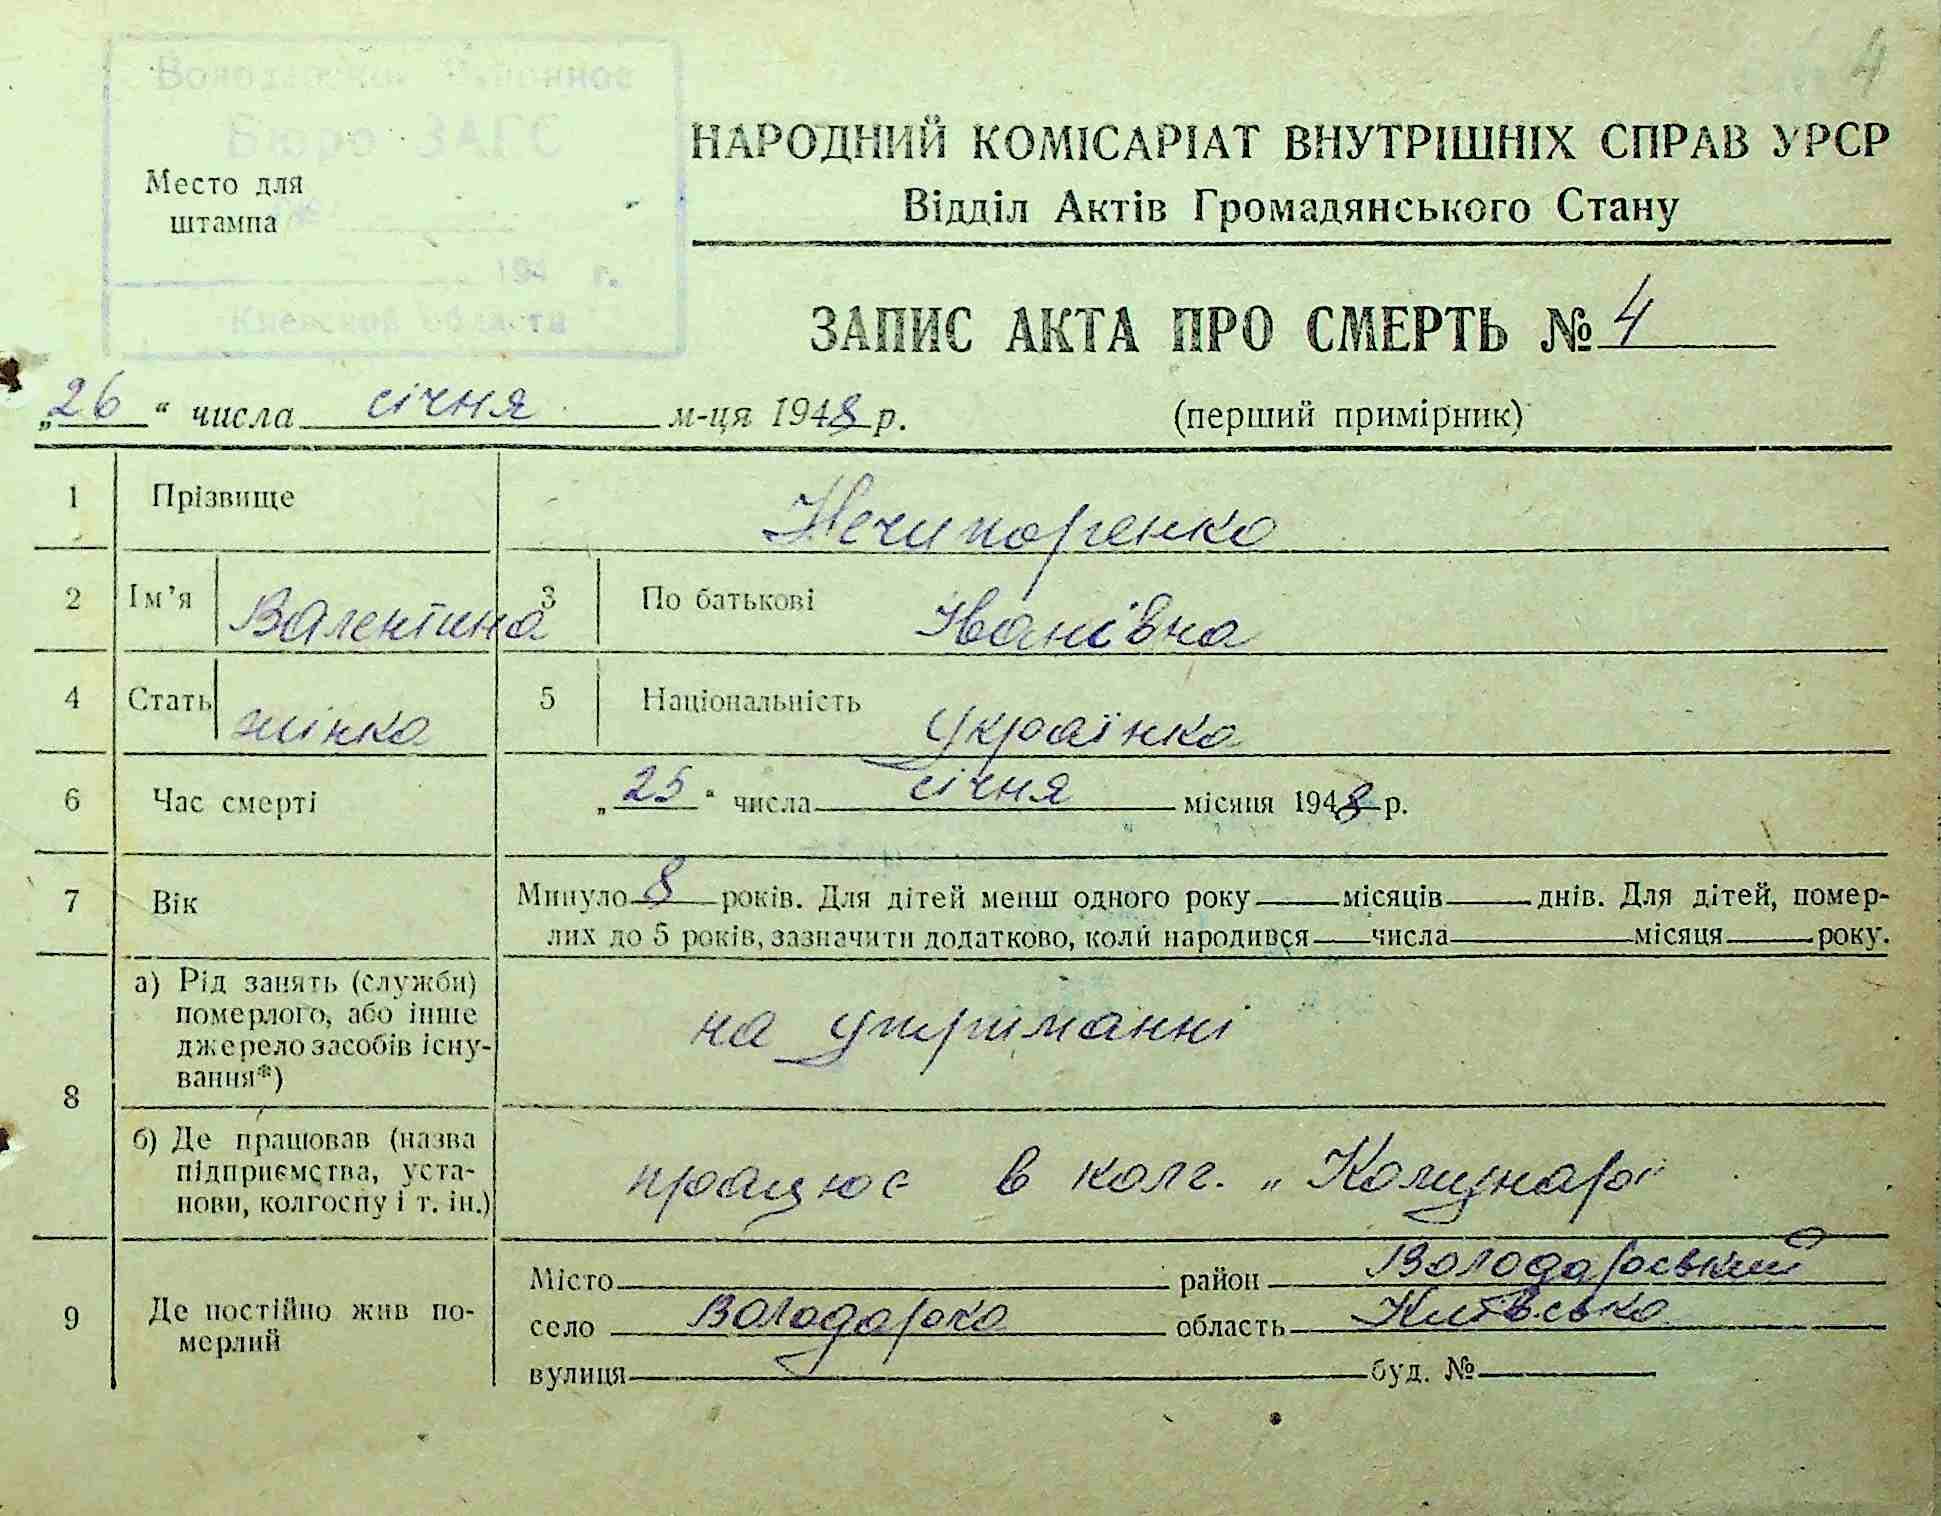 4
Бюро ЗАГС
Место для
штампа
194 г.
Киевской области
НАРОДНИЙ КОМІСАРІАТ ВНУТРІШНІХ СПРАВ УРСР
Відділ Актів Громадянського Стану
ЗАПИС АКТА ПРО СМЕРТЬ № 4
„26“ числа січня м-ця 1948 р. (перший примірник)
1 Прізвище Нечипоренко
2 Ім'я Валентина 3 По батькові Іванівна
4 Стать жінка 5 Національність українка
6 Час смерті „25“ числа січня місяця 1948 р.
7 Вік Минуло 8 років. Для дітей менш одного року місяців днів. Для дітей, помер-
лих до 5 років, зазначити додатково, коли народився числа місяця року.
8 а) Рід занять (служби)
померлого, або інше
джерело засобів існу-
вання*)
на утриманні
б) Де працював (назва
підприємства, уста-
нови, колгоспу і т. ін.)
працює в колг. „Комунар"
9 Де постійно жив по-
мерлий
Місто район Володарський
село Володарка область Київська
вулиця буд. №